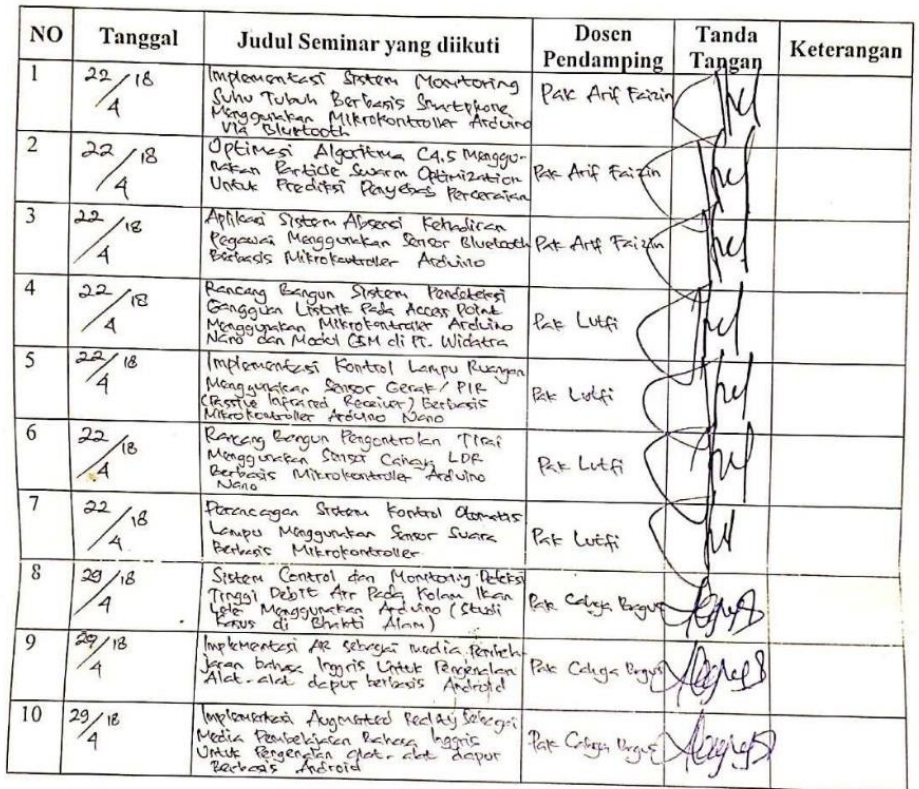 NO Tanggal Judul Seminar yang diikuti Dosen Pendamping Tanda Tangan Keterangan
1 22/4 18 Implementasi Sistem Monitoring
Suhu Tubuh Berbasis Smartphone
Menggunakan Mikrokontroller Arduino
Via Bluetooth
Pak Arif Faizin
2 22/4 18 Optimasi Algoritma C4.5 Menggu-
nakan Particle Swarm Optimization
Untuk Prediksi Penyebab Perceraian
Pak Arif Faizin
3 22/4 18 Aplikasi Sistem Absensi Kehadiran
Pegawai Menggunakan Sensor Bluetooth
Berbasis Mikrokontroller Arduino
Pak Arif Faizin
4 22/4 18 Rancang Bangun Sistem Pendeteksi
Gangguan Listrik Pada Access Point
Menggunakan Mikrokontroller Arduino
Nano dan Modul GSM di PT. Widatra
Pak Lutfi
5 22/4 18 Implementasi Kontrol Lampu Ruangan
Menggunakan Sensor Gerak / PIR
(Passive Infrared Receiver) Berbasis
Mikrokontroller Arduino Nano
Pak Lutfi
6 22/4 18 Rancang Bangun Pengontrolan Tirai
Menggunakan Sensor Cahaya LDR
Berbasis Mikrokontroller Arduino
Nano
Pak Lutfi
7 22/4 18 Perancangan Sistem Kontrol Otomatis
Lampu Menggunakan Sensor Suara
Berbasis Mikrokontroller
Pak Lutfi
8 29/4 18 Sistem Control dan Monitoring Deteksi
Tinggi Debit Air Pada Kolam Ikan
Lele Menggunakan Arduino (Studi
Kasus di Bhakti Alam)
Pak Cahya Bagus
9 29/4 18 Implementasi AR sebagai media Pembela-
jaran bahasa Inggris Untuk Pengenalan
Alat-alat dapur berbasis Android
Pak Cahya Bagus
10 29/4 18 Implementasi Augmented Reality Sebagai
Media Pembelajaran Bahasa Inggris
Untuk Pengenalan alat-alat dapur
Berbasis Android
Pak Cahya Bagus